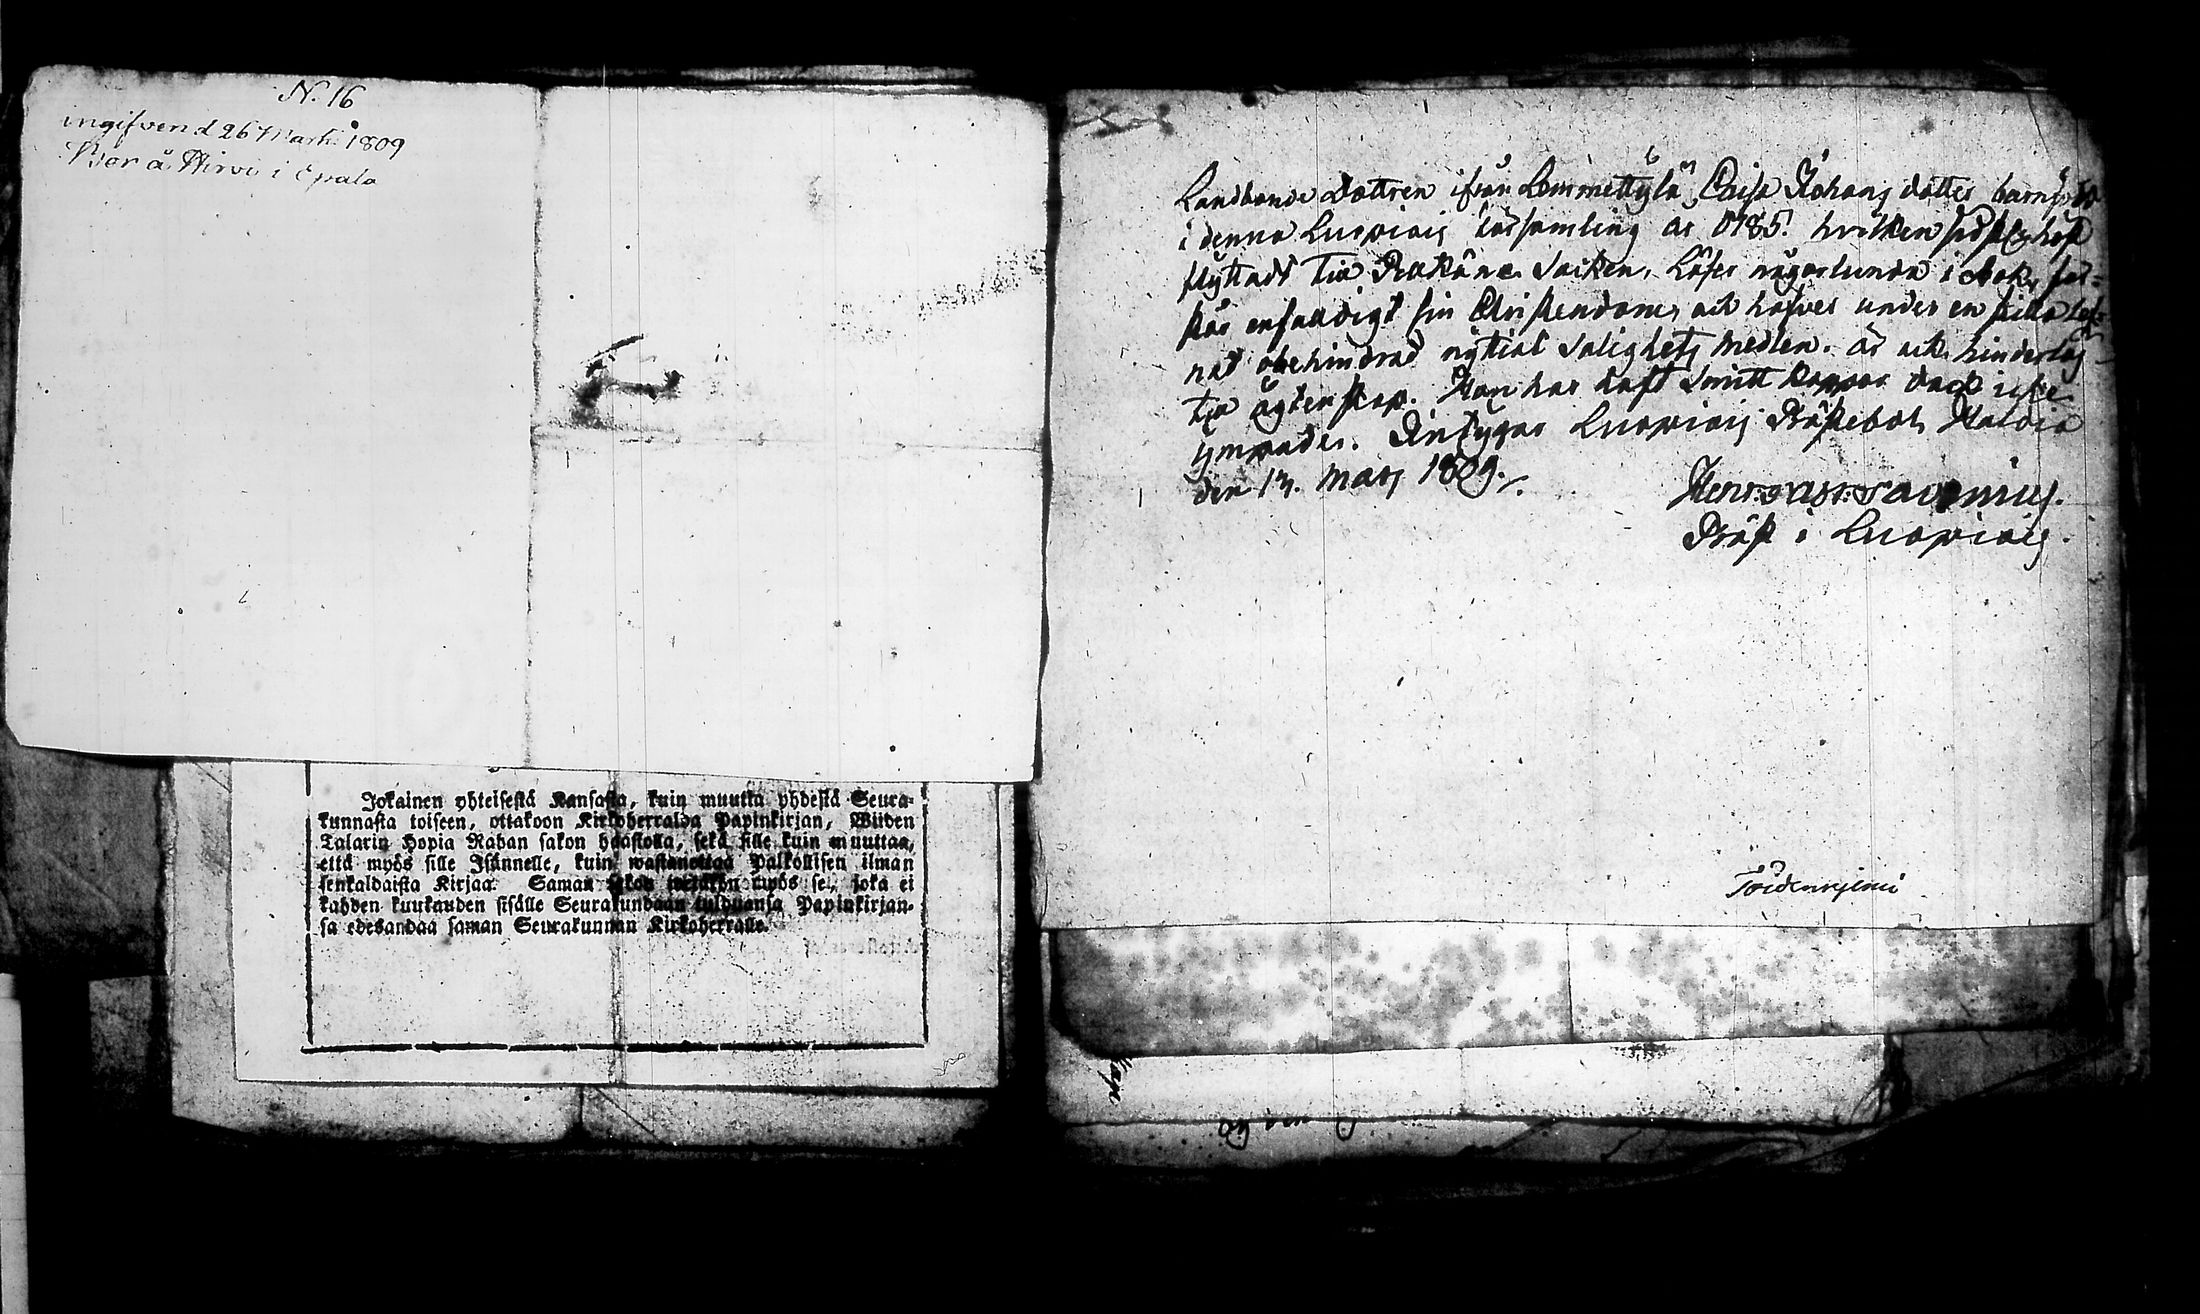 N. 16
ingifven d 26 Martii 1809
Bor å Hirvi i Epala
Jokainen yhteisestä Kansasta, kuin muutta yhdestä Seura-
kunnasta toiseen, ottakoon Kirkoherralda Papinkirjan, Wiiden
Talarin Hopia Rahan sakon haastolla, sekä sille kuin muuttaa,
että myös sille Isännelle, kuin wastanottaa Palkollisen ilman
senkaldaista Kirjaa. Saman sakon wetäkön myös se, joka ei
kahden kuukauden sisälle Seurakundaan tulduansa Papinkirjan-
sa edesandaa saman Seurakunnan Kirkoherralle.
Landbonde Dottren ifrån Lemmettylä, Caisa Johans dotter barnfödd
i denna församling år 1785. hvilken
flyttadt till Pelkäne Socken, Läser någorlunda i Bok, för-
står enfaldigt sin Christendom, och hafver under en stilla lef-
nad obehindrad nyttiat Salighets medlen. är ock hinderlös
till ägtenskap. Hon har haft Smitt koppor dock icke
ympade. Intygar
den 13. Mars 1809.
i
den